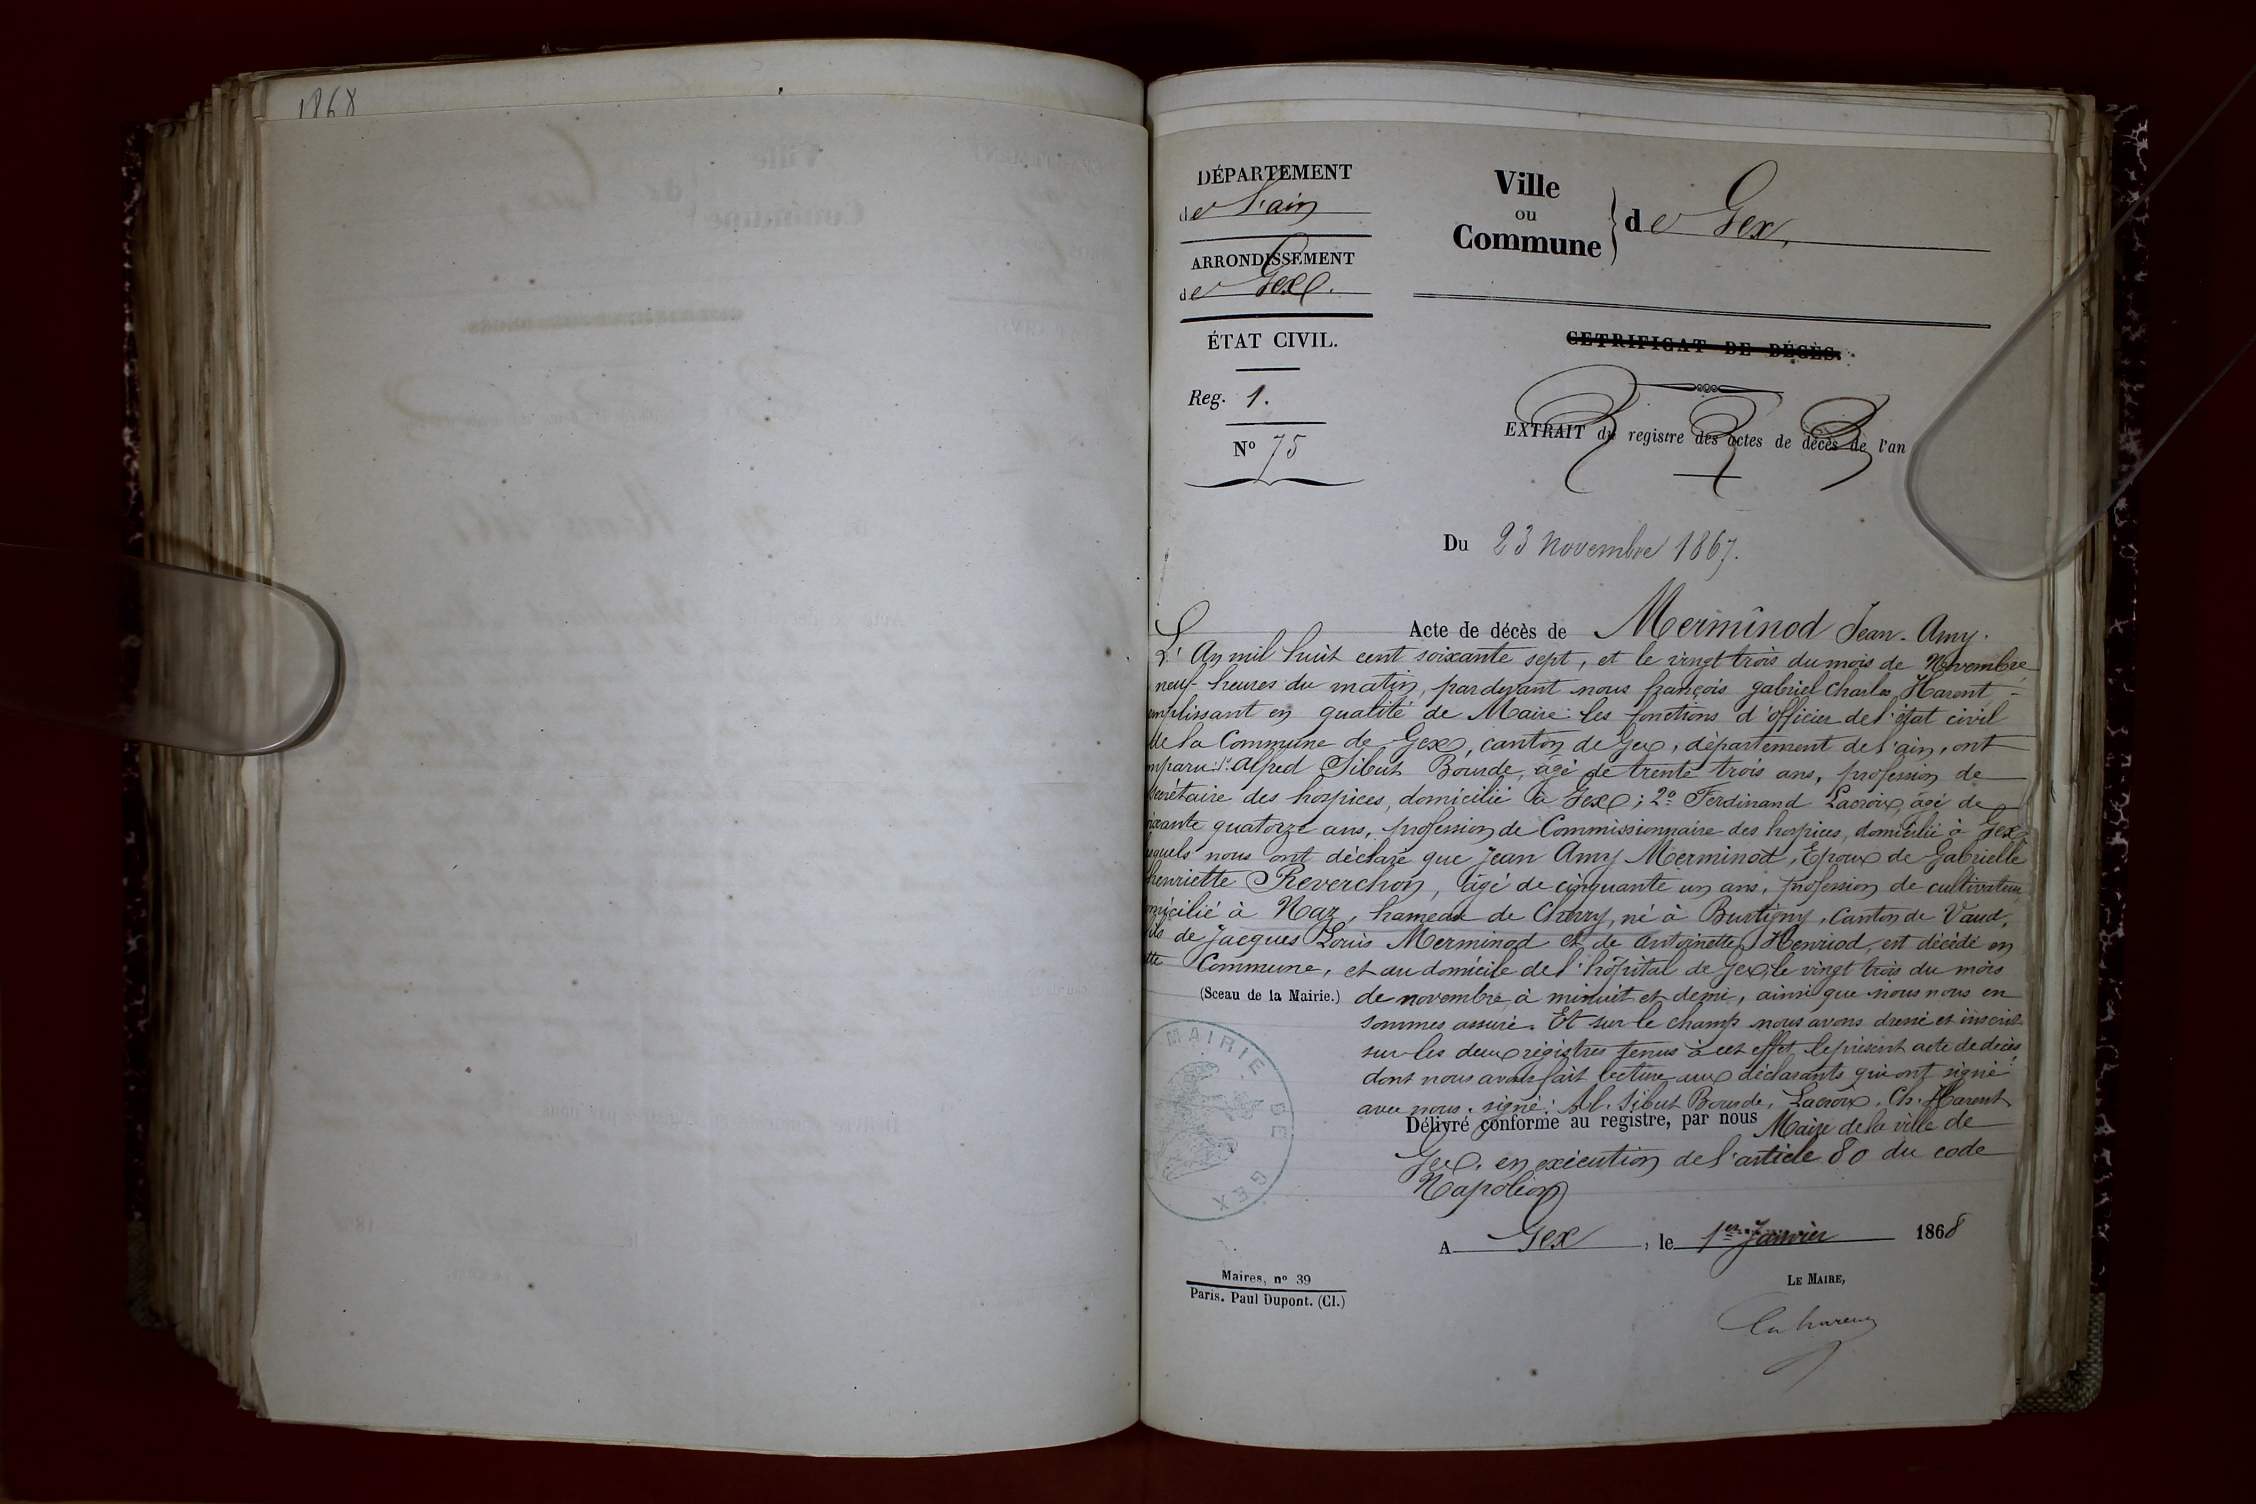 1868
DÉPARTEMENT
de l'ain
ARRONDISSEMENT
de Gex.
ÉTAT CIVIL.
Reg. 1.
No 75
Ville
ou
Commune
de Gex.
CETRIFICAT DE DÉCÈS.
EXTRAIT du registre des actes de décès de l'an
Du 23 novembre 1867.
Acte de décès de Merminod Jean-Amy.
L'An mil huit cent soixante sept, et le vingt trois du mois de Novembre,
neuf heures du matin, pardevant nous françois gabriel Charles Harent
mplissant en qualité de Maire les fonctions d'officier de l'état civil
de la Commune de Gex, canton de Gex, département de l'ain, ont
mparu: 1º Alfred Sibut Bourde, âgé de trente trois ans, profession de
secrétaire des hospices, domicilié à Gex; 2º Ferdinand Lacroix, âgé de
ixante quatorze ans, profession de Commissionnaire des hospices, domicilié à Gex
squels nous ont déclaré que Jean Amy Merminod, Epoux de Gabrielle
henriette Reverchon, âgé de cinquante un ans, profession de cultivateur
micilié à Naz, hameau de Chevry, né à Burtigny, Canton de Vaud,
ils de Jacques Louis Merminod et de antoinette Henriod, est décédé en
tte Commune, et au domicile de l'hôpital de Gex, le vingt trois du mois
(Sceau de la Mairie.) de novembre à minuit et demi, ainsi que nous nous en
sommes assuré. Et sur le champ nous avons dressé et inscrit
sur les deux registres tenus à cet effet, le présent acte de décès
dont nous avons fait lecture aux déclarants qui ont signé
avec nous. signé: Al. Sibut Bourde, Lacroix, Ch. Harent
Délivré conforme au registre, par nous Maire de la ville de
Gex, en exécution de l'article 80 du code
Napoléon
MAIRIE DE GEX
A Gex, le 1er Janvier 1868
Maires, no 39
Paris. Paul Dupont. (Cl.)
LE MAIRE,